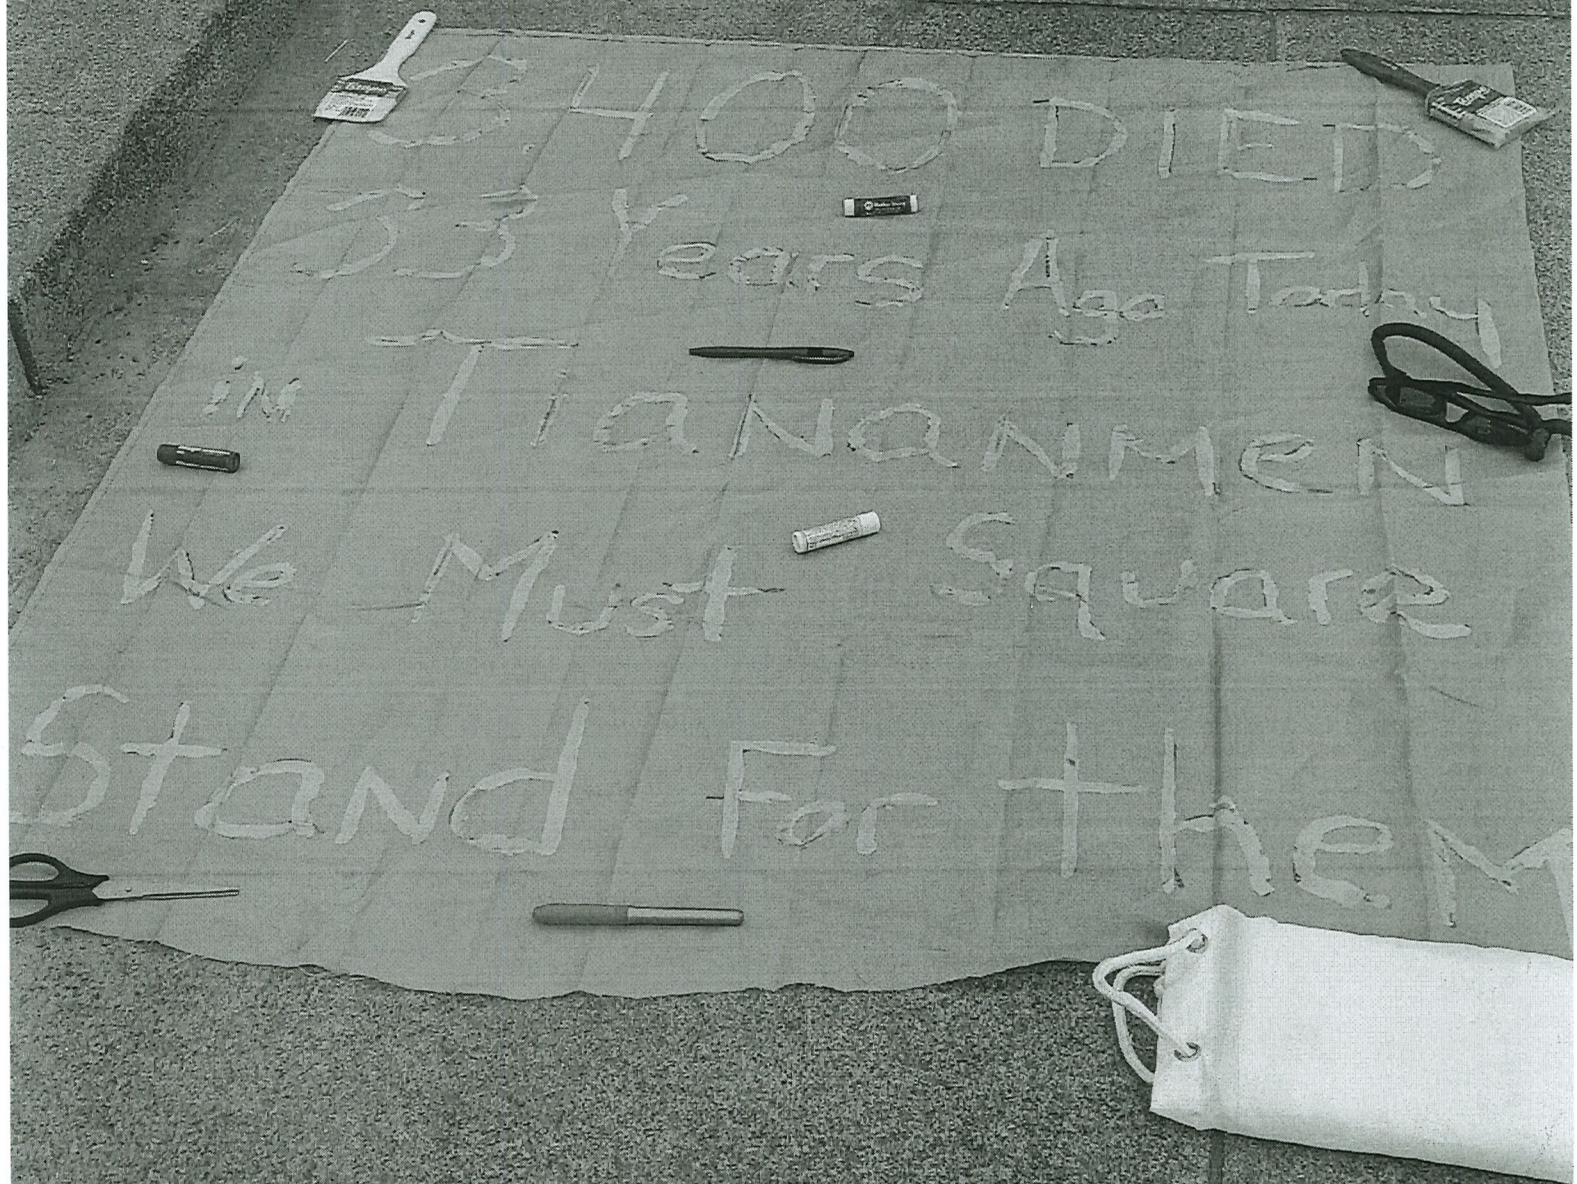 3,400 DIED
33 Years Ago Today
iN TiaNaNMeN
We Must Square
StaNd For theM